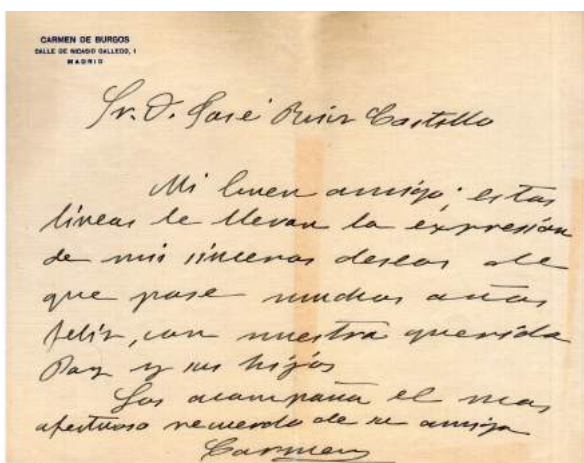 CARMEN DE BURGOS
CALLE DE NICASIO GALLEGO, 1
MADRID
Sr. D. José Ruiz Castillo
Mi buen amigo; estas
líneas le llevan la expresión
de mis sinceros deseos de
que pase muchos años
feliz, con nuestra querida
Paz y sus hijos
Los acompaña el mas
afectuoso recuerdo de su amiga
Carmen